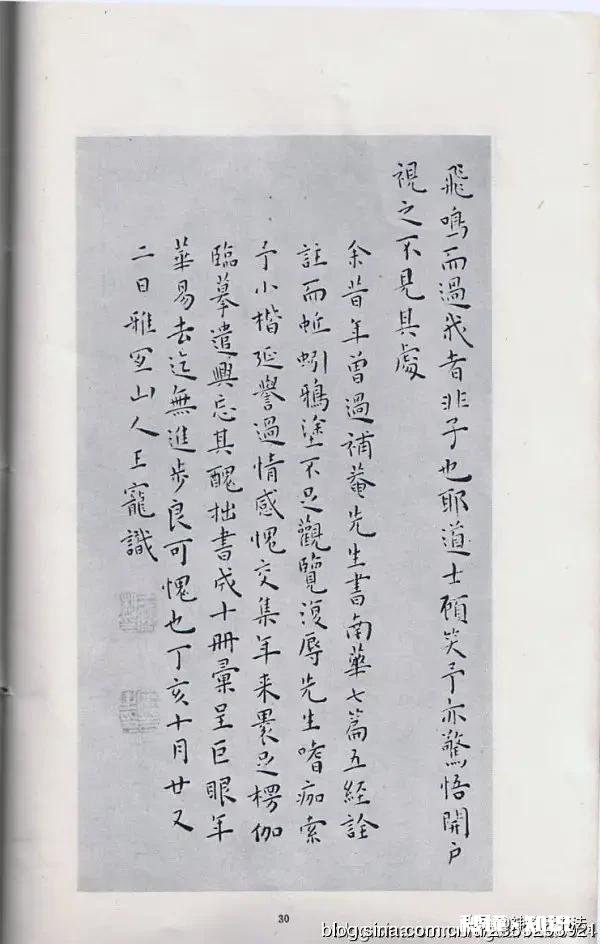 飛鳴而過我者非子也耶道士顧笑予亦驚悟開戶
視之不見其處
余昔年曾過補菴先生書南華七篇五經詮
註而蚯蚓鴉塗不足觀覽復辱先生嗜痂索
予小楷延譽過情感愧交集年来累足楞伽
臨摹遣興忘其醜拙書成十冊彙呈巨眼年
華易去迄無進步良可愧也丁亥十月廿又
二日雅宜山人王寵識
30
blog.sina.com.cn